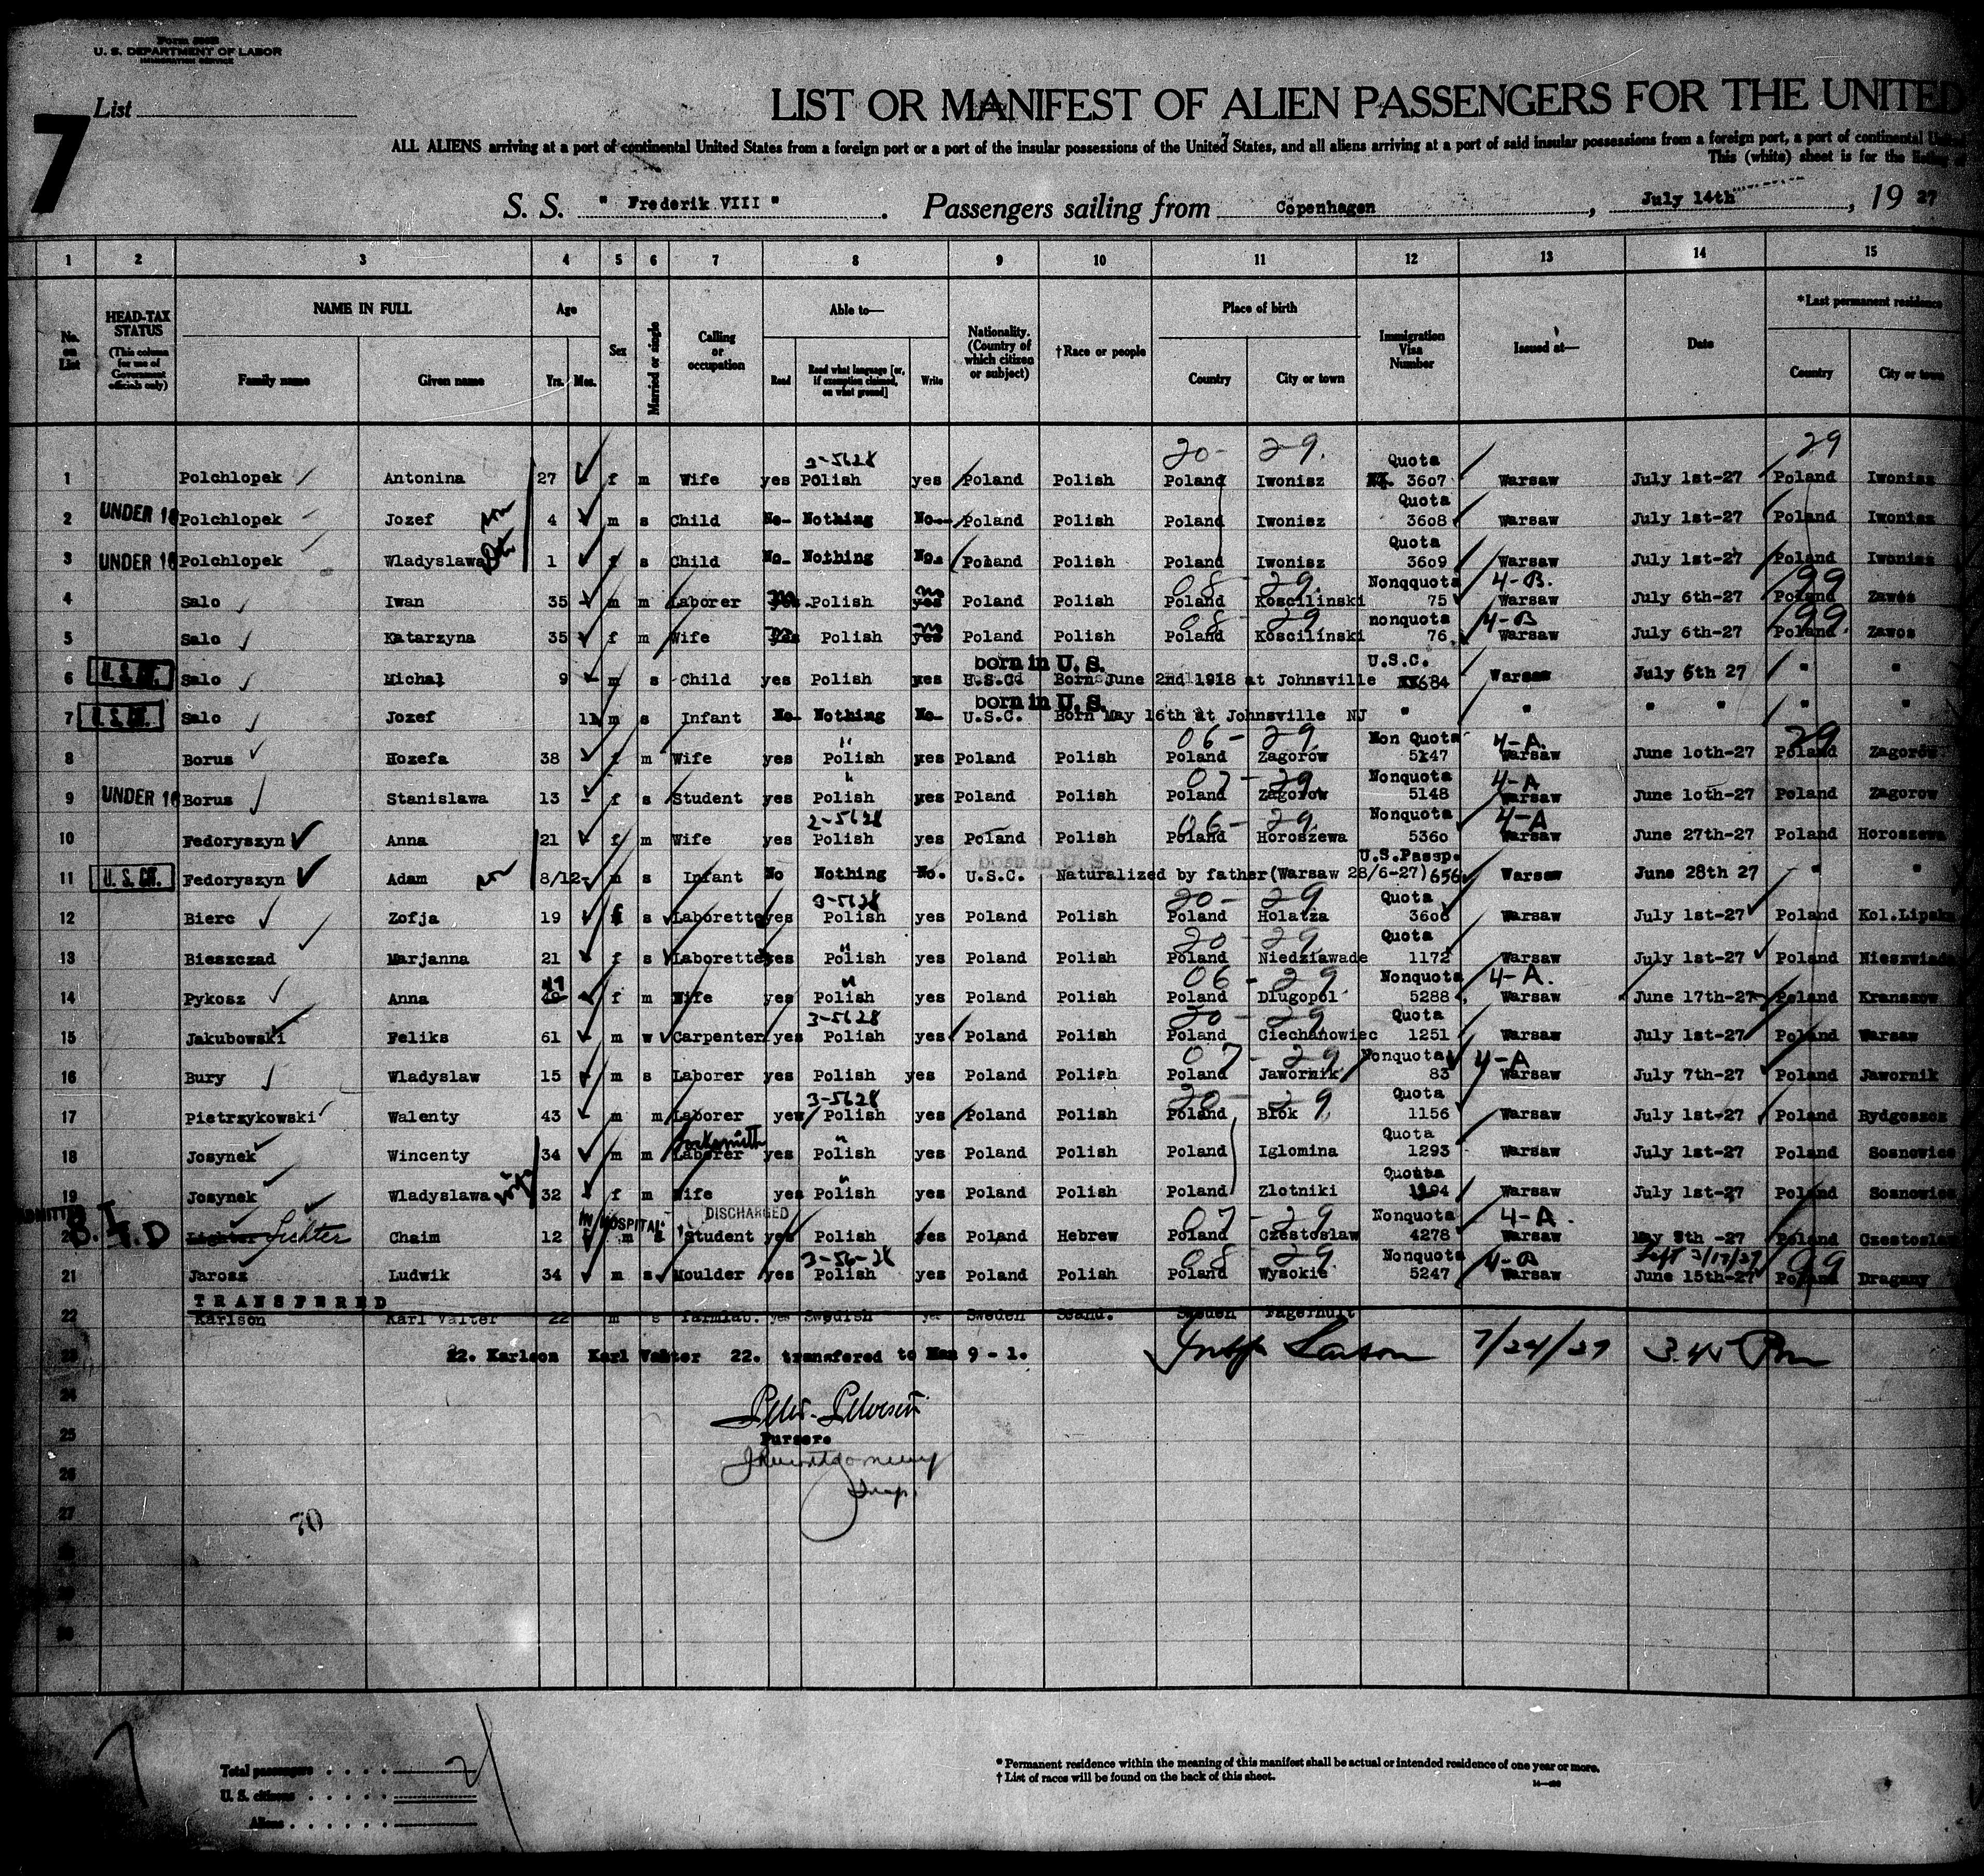 U. S. DEPARTMENT OF LABOR
IMMIGRATION SERVICE
7
List
LIST OR MANIFEST OF ALIEN PASSENGERS FOR THE UNITED
ALL ALIENS arriving at a port of continental United States from a foreign port or a port of the insular possessions of the United States, and all aliens arriving at a port of said insular possessions from a foreign port, a port of continental
This (white) sheet is for the
S. S. " Frederik VIII " . Passengers sailing from Copenhagen , July 14th , 19 27
1 2 3 4 5 6 7 8 9 10 11 12 13 14 15
No. on List
HEAD-TAX STATUS (This column for use of Government officials only)
NAME IN FULL Family name Given name
Age Yrs. Mos.
Sex
Married or single
Calling or occupation
Able to— Read Read what language [or, if exemption claimed, on what ground] Write
Nationality. (Country of which citizen or subject)
†Race or people
Place of birth Country City or town
Immigration Visa Number
Issued at—
Date
*Last permanent residence Country City or town
3-5628 20- 29. Quota 29
1 Polchlopek Antonina 27 f m Wife yes Polish yes Poland Polish Poland Iwonisz 3607 Warsaw July 1st-27 Poland Iwonisz
Quota
2 UNDER 16 Polchlopek Jozef 4 m s Child No- Nothing No- Poland Polish Poland Iwonisz 3608 Warsaw July 1st-27 Poland Iwonisz
Quota
3 UNDER 16 Polchlopek Wladyslawa 1 f s Child No- Nothing No. Poland Polish Poland Iwonisz 3609 Warsaw July 1st-27 Poland Iwonisz
08 - 29. Nonqquota 4-B. 99
4 Salo Iwan 35 m m Laborer no Polish no Poland Polish Poland Koscilinski 75 Warsaw July 6th-27 Poland Zawos
08 - 29 nonquota 4-B 99
5 Salo Katarzyna 35 f m Wife Polish no Poland Polish Poland Koscilinski 76 Warsaw July 6th-27 Poland Zawos
born in U. S. U.S.C.
6 U.S. CIT. Salo Michal 9 m s Child yes Polish yes U.S.Cd Born June 2nd 1918 at Johnsville 684 Warsaw July 6th 27 " "
born in U. S.
7 U.S. CIT. Salo Jozef 11 m s Infant No- Nothing No- U.S.C. Born May 16th at Johnsville NJ " " " " " "
" 06 - 29 Non Quota 4-A. 29
8 Borus Hozefa 38 f m Wife yes Polish yes Poland Polish Poland Zagorów 5147 Warsaw June 1oth-27 Poland Zagorów
" 07 - 29 Nonquota 4-A
9 UNDER 16 Borus Stanislawa 13 f s Student yes Polish yes Poland Polish Poland Zagorow 5148 Warsaw June 1oth-27 Poland Zagorow
2-5628 06 - 29 Nonquota 4-A
10 Fedoryszyn Anna 21 f m Wife yes Polish yes Poland Polish Poland Horoszewa 5360 Warsaw June 27th-27 Poland Horoszewa
born in U. S. U.S.Passp.
11 U.S. CIT. Fedoryszyn Adam 8/12- m s Infant No Nothing No. U.S.C. Naturalized by father(Warsaw 28/6-27) 656 Warsaw June 28th 27 " "
3-5628 20 - 29 Quota
12 Bierc Zofja 19 f s Laborette yes Polish yes Poland Polish Poland Holatza 3606 Warsaw July 1st-27 Poland Kol.Lipska
" 20 - 29 Quota
13 Bieszczad Marjanna 21 f s Laborette yes Polish yes Poland Polish Poland Niedziawade 1172 Warsaw July 1st-27 Poland
" 06 - 29 Nonquota 4-A.
14 Pykosz Anna 49 f m Wife yes Polish yes Poland Polish Poland Dlugopol 5288 Warsaw June 17th-27 Poland
3-5628 20 - 29 Quota
15 Jakubowski Feliks 61 m w Carpenter yes Polish yes Poland Polish Poland Ciechanowiec 1251 Warsaw July 1st-27 Poland Warsaw
07 - 29 Nonquota 4-A
16 Bury Wladyslaw 15 m s Laborer yes Polish yes Poland Polish Poland Jawornik 83 Warsaw July 7th-27 Poland Jawornik
3-5628 20 - 29 Quota
17 Pietrzykowski Walenty 43 m m Laborer yes Polish yes Poland Polish Poland Blok 1156 Warsaw July 1st-27 Poland
Locksmith " Quota
18 Josynek Wincenty 34 m m Laborer yes Polish yes Poland Polish Poland Iglomina 1293 Warsaw July 1st-27 Poland Sosnowice
"
19 Josynek Wladyslawa wife 32 f m Wife yes Polish yes Poland Polish Poland Zlotniki 1294 Warsaw July 1st-27 Poland Sosnowice
ADMITTED IN HOSPITAL DISCHARGED 07 - 29 Nonquota 4-A.
20 B.I.D Lichter Chaim 12 m s Student yes Polish yes Poland Hebrew Poland Czestoslaw 4278 Warsaw May 8th -27 Poland Czestoslaw
3-56-28 08 29. Nonquota 4-B 99
21 Jarosz Ludwik 34 m s Moulder yes Polish yes Poland Polish Poland Wysokie 5247 Warsaw June 15th-27 Poland Dragany
TRANSFERED
22 Karlson Karl Valter 22 m s farmlab. yes Swedish yes Sweden Scand. Sweden Fagerhult
23 22. Karlson Karl Valter 22. transfered to Man 9 - 1. Insp Larson 7/24/27 3.45 Pm
24
25 Purser.
26 Insp.
27
70
Total passengers
U. S. citizens
Aliens
* Permanent residence within the meaning of this manifest shall be actual or intended residence of one year or more.
† List of races will be found on the back of this sheet.